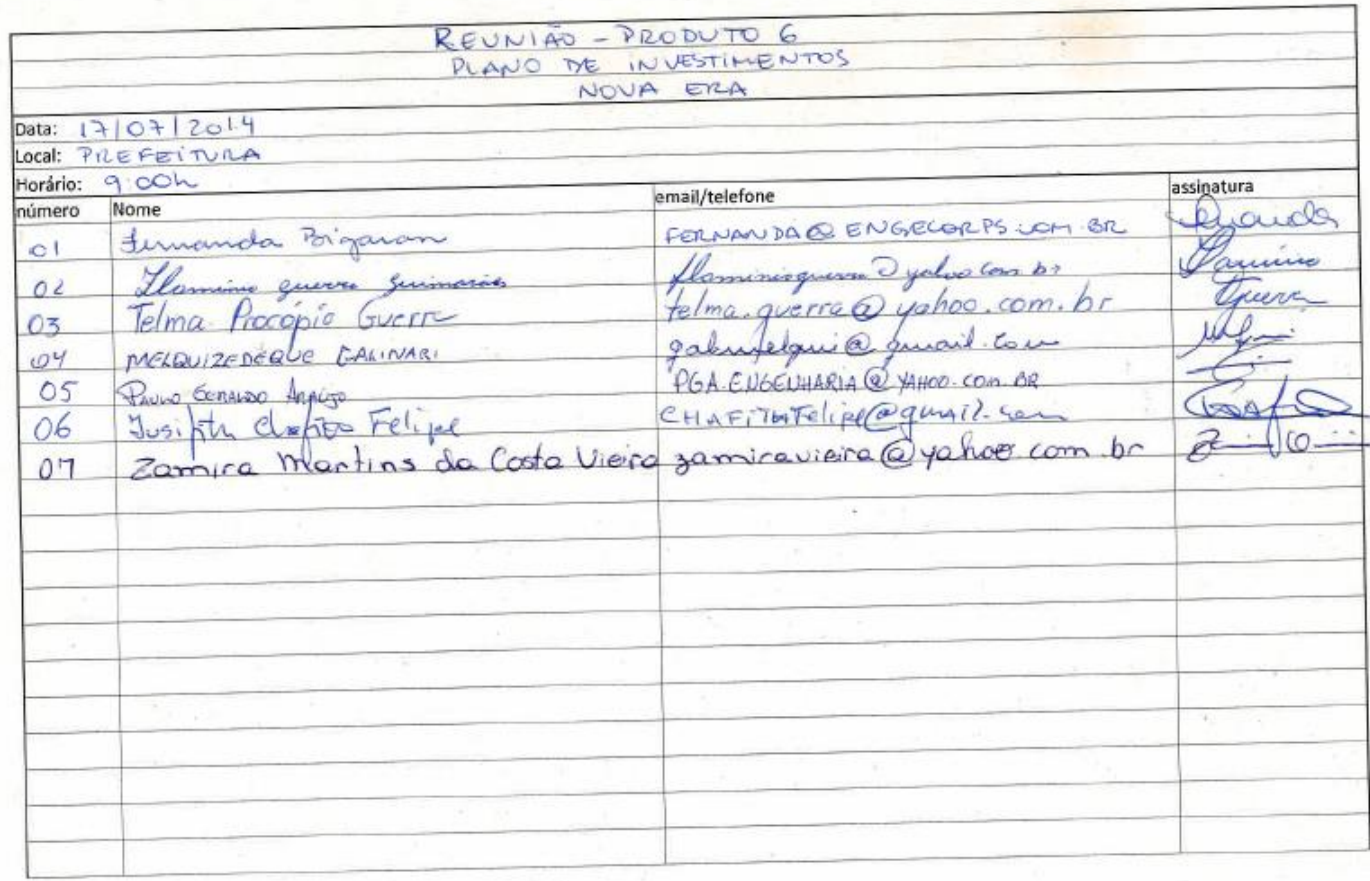 REUNIÃO - PRODUTO 6
PLANO DE INVESTIMENTOS
NOVA ERA
Data: 17/07/2014
Local: PREFEITURA
Horário: 9:00h
número Nome email/telefone assinatura
01 Fernanda Bigaran FERNANDA@ENGECORPS.COM.BR Fernanda
02 Flaminio guerra guimarães flaminioguerra@yahoo.com.br Flaminio
03 Telma Procópio Guerra telma.guerra@yahoo.com.br Guerra
04 MELQUIZEDEQUE GALINARI @gmail.com
05 PAULO GERALDO ARAÚJO PGA.ENGENHARIA@YAHOO.COM.BR
06 Felipe
07 Zamira Martins da Costa Vieira zamiravieira@yahoo.com.br